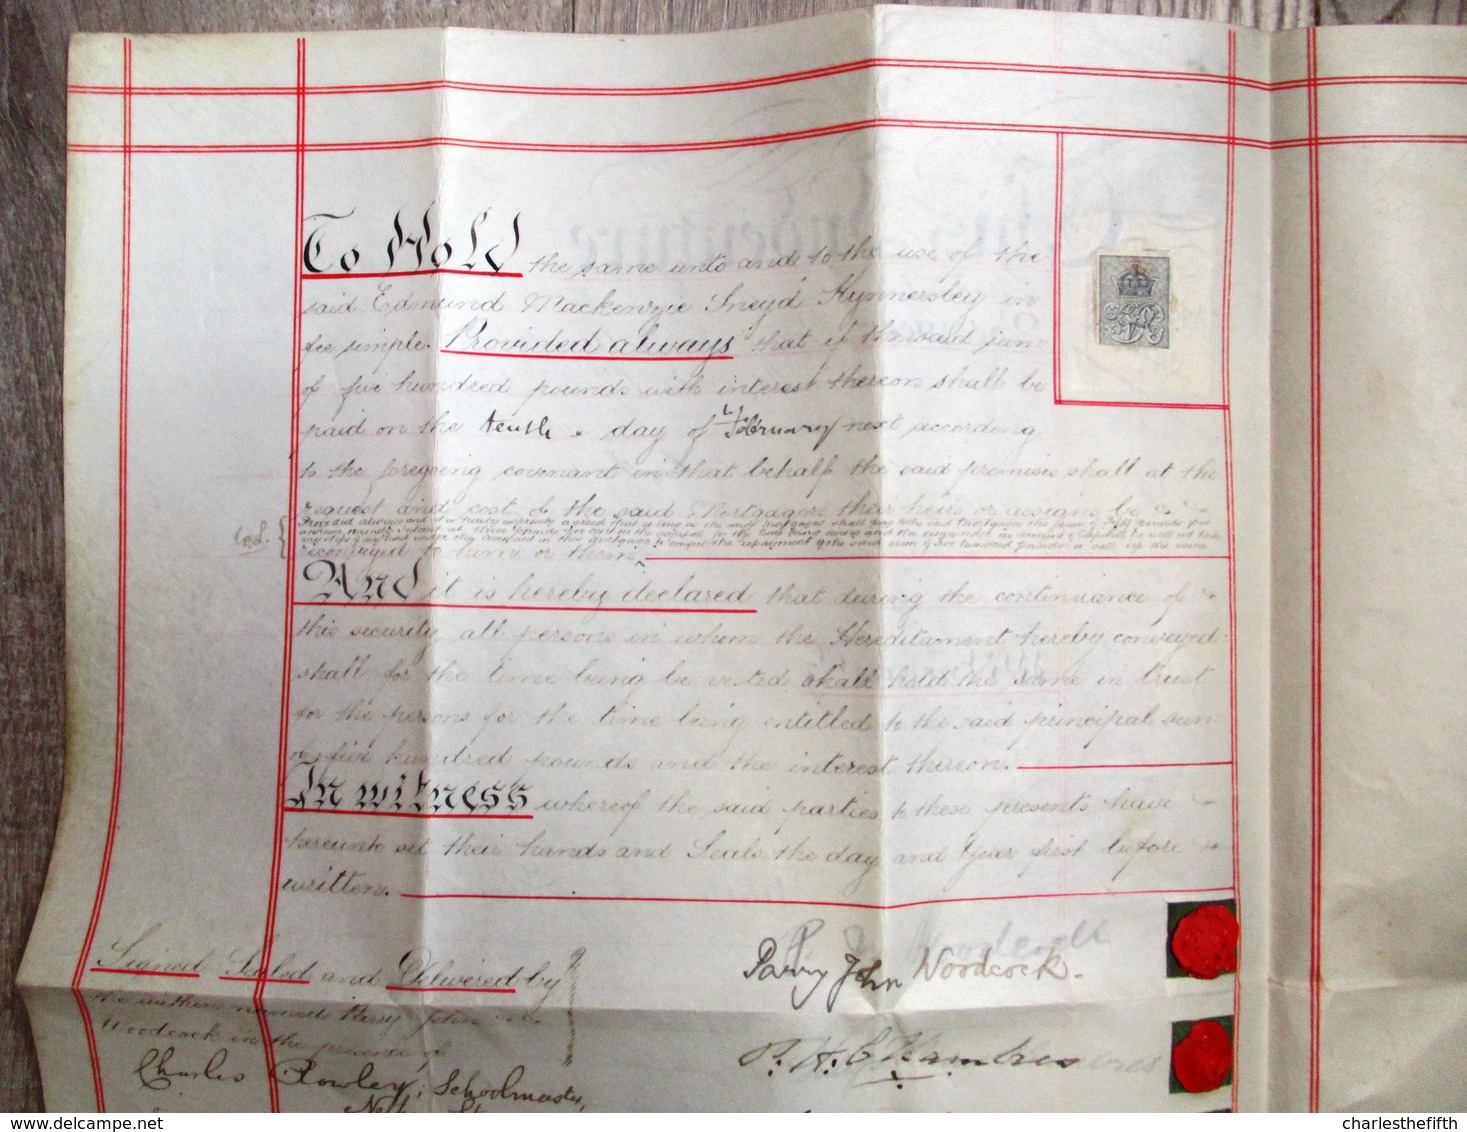 To Hold the same unto and to the use of the
said Edmund Mackenzie Sneyd Kynnersley in
fee simple. Provided always that if the said sum
of five hundred pounds with interest thereon shall be
paid on the tenth day of February next according
to the foregoing covenant in that behalf the said premises shall at the
request and cost of the said Mortgagors their heirs or assigns be
Provided always and it is hereby expressly agreed that so long as the said mortgagors shall pay the said mortgagee the sum of
reconveyed to him or them.
And it is hereby declared that during the continuance of
this security all persons in whom the Hereditament hereby conveyed
shall for the time being be vested shall hold the same in trust
for the persons for the time being entitled to the said principal sum
of five hundred pounds and the interest thereon.
In witness whereof the said parties to these presents have
hereunto set their hands and Seals the day and year first before
written.
Signed Sealed and Delivered by
the within named Parry John
Woodcock in the presence of
Charles Rowley, Schoolmaster,
Parry John Woodcock.
charlesthefifth
www.delcampe.net